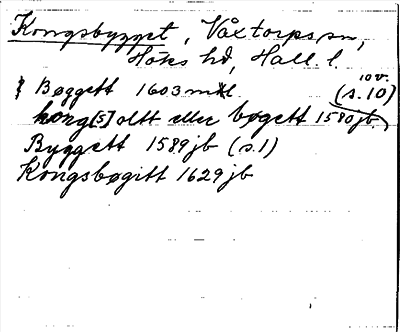 Kongsbygget, Våxtorps sn,
Höks hd, Hall. l.
Bøggett 1603 mtl 10 v.
(s. 10)
kong[s] oltt eller bøgett 1580 jb.
Byggett 1589 jb (s. 1)
Kongsbøgitt 1629 jb